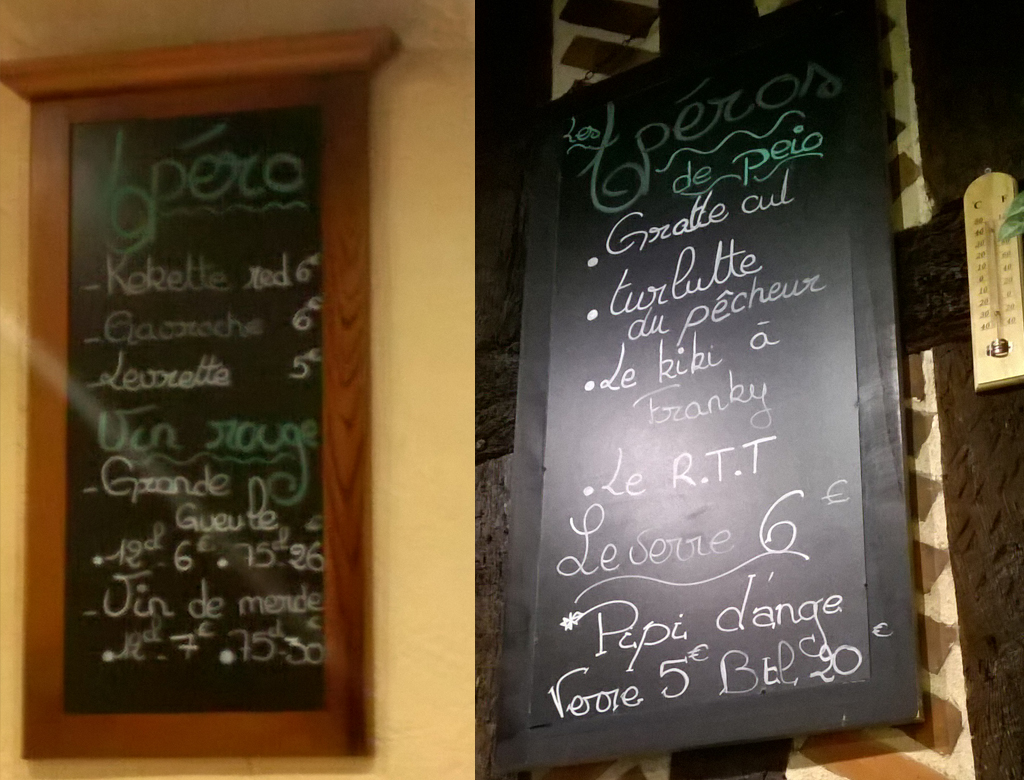 Apéro
- Kokette red 6€
- Gavroche 6€
- Levrette 5€
Vin rouge
- Grande
Gueule
• 12cl - 6€ • 75cl - 26€
- Vin de merde
• 12cl - 7€ • 75cl - 30€
Les Apéros
de Peio
• Gratte cul
• turlutte
du pêcheur
• Le kiki à
Franky
• Le R.T.T
Le verre 6€
* Pipi d'ange
Verre 5€ Btl 20€
C F